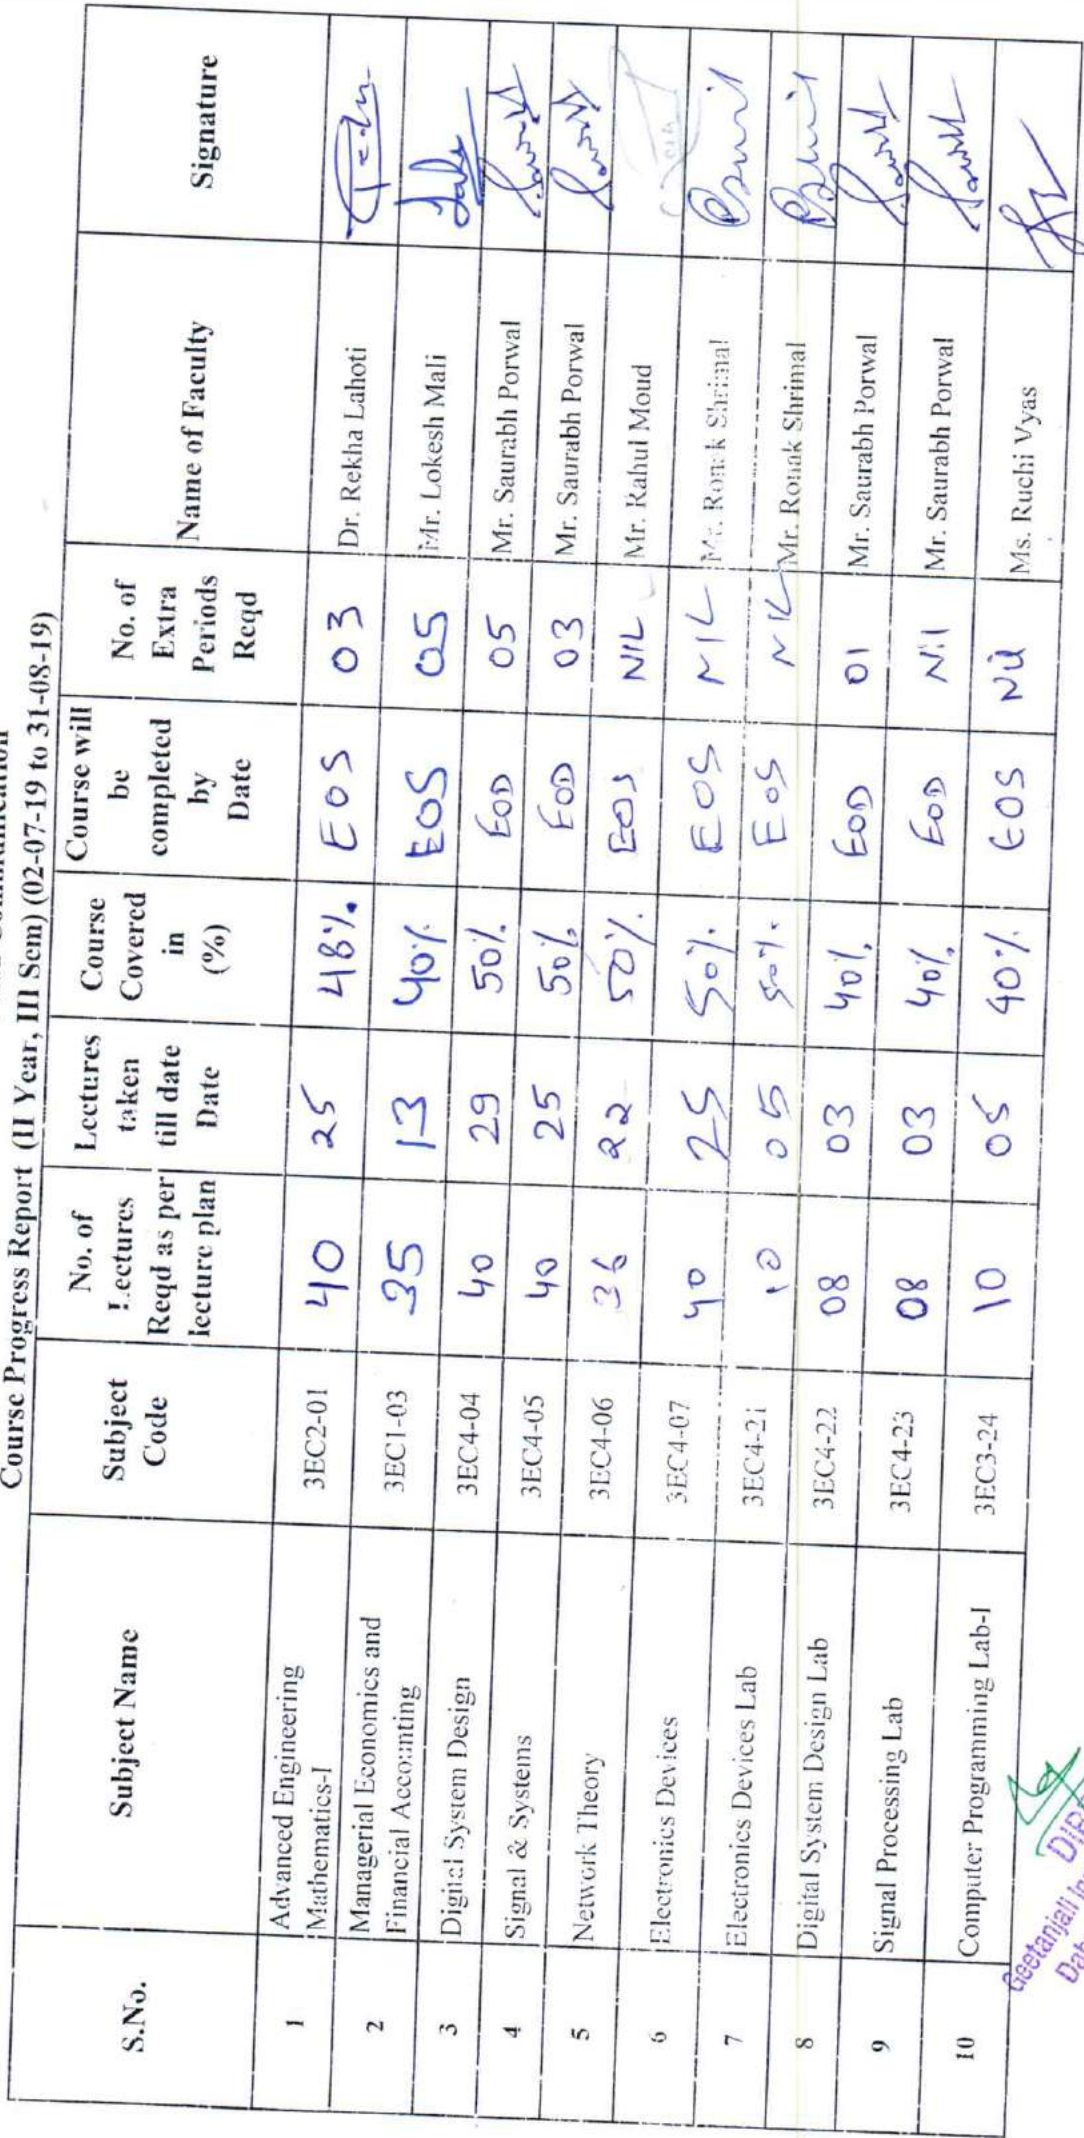 Course Progress Report (II Year, III Sem) (02-07-19 to 31-08-19)
S.No. Subject Name Subject Code No. of Lectures Reqd as per lecture plan Lectures taken till date Date Course Covered in (%) Course will be completed by Date No. of Extra Periods Reqd Name of Faculty Signature
1 Advanced Engineering Mathematics-I 3EC2-01 40 25 48% EOS 03 Dr. Rekha Lahoti
2 Managerial Economics and Financial Accounting 3EC1-03 35 13 40% EOS 05 Mr. Lokesh Mali
3 Digital System Design 3EC4-04 40 29 50% EOD 05 Mr. Saurabh Porwal
4 Signal & Systems 3EC4-05 40 25 50% EOD 03 Mr. Saurabh Porwal
5 Network Theory 3EC4-06 36 22 50% EOS NIL Mr. Rahul Moud
6 Electronics Devices 3EC4-07 40 25 50% EOS NIL Mr. Ronak Shrimal
7 Electronics Devices Lab 3EC4-21 10 05 50% EOS NIL Mr. Ronak Shrimal
8 Digital System Design Lab 3EC4-22 08 03 40% EOD 01 Mr. Saurabh Porwal
9 Signal Processing Lab 3EC4-23 08 03 40% EOD Nil Mr. Saurabh Porwal
10 Computer Programming Lab-I 3EC3-24 10 05 40% EOS Nil Ms. Ruchi Vyas
Geetanjali